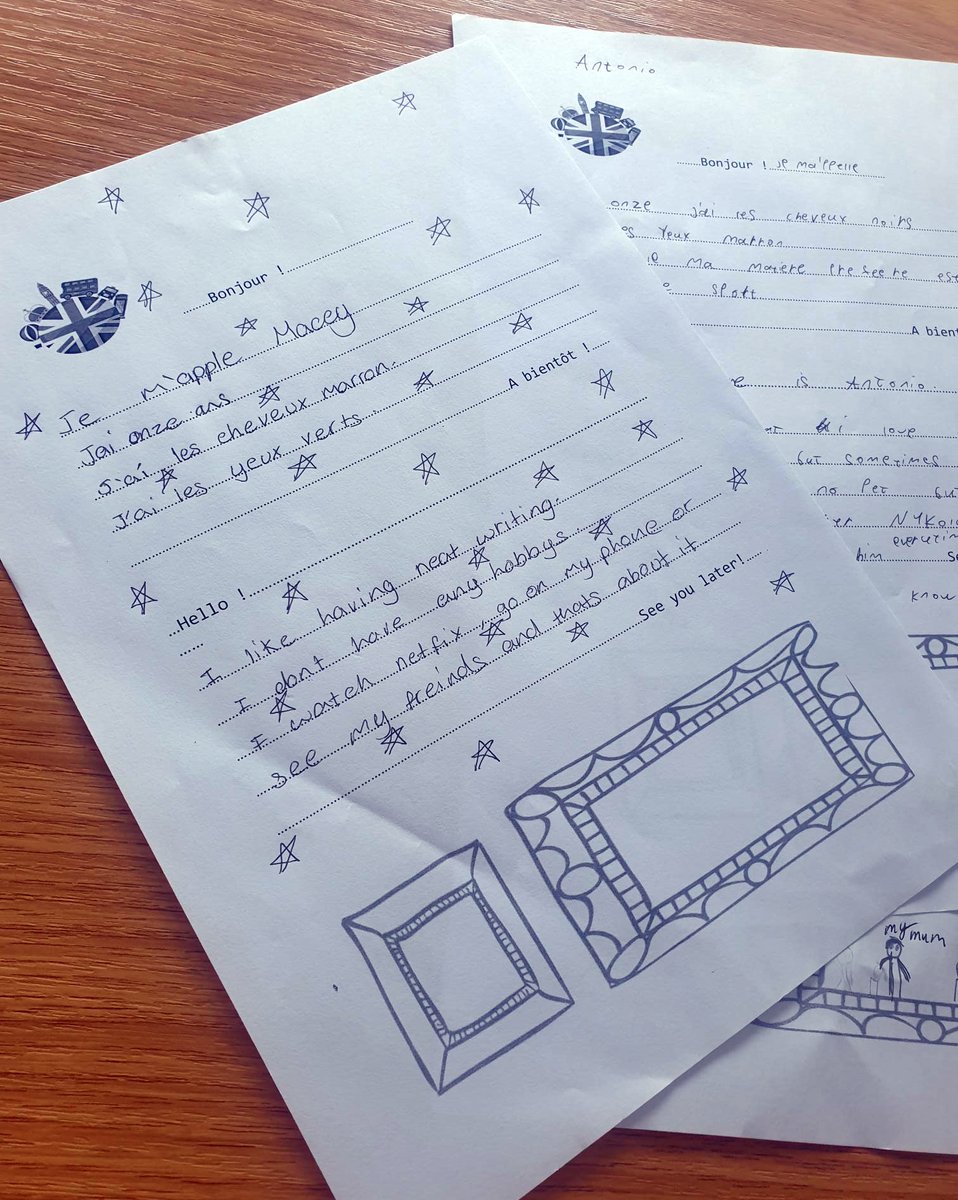 Bonjour !
Je m'apple Macey
J'ai onze ans
J'ai les cheveux marron.
J'ai les yeux verts.
A bientôt !
Hello !
I like having neat writing.
I dont have any hobbys
I watch netfix, go on my phone or
see my freinds and thats about it
See you later!
Antonio
Bonjour ! je ma'ppelle
onze j'ai les cheveux noirs
yeux marron
ma
est
sport
A bient
is Antonio.
i love
but sometimes
no Pet
him
know
my mum